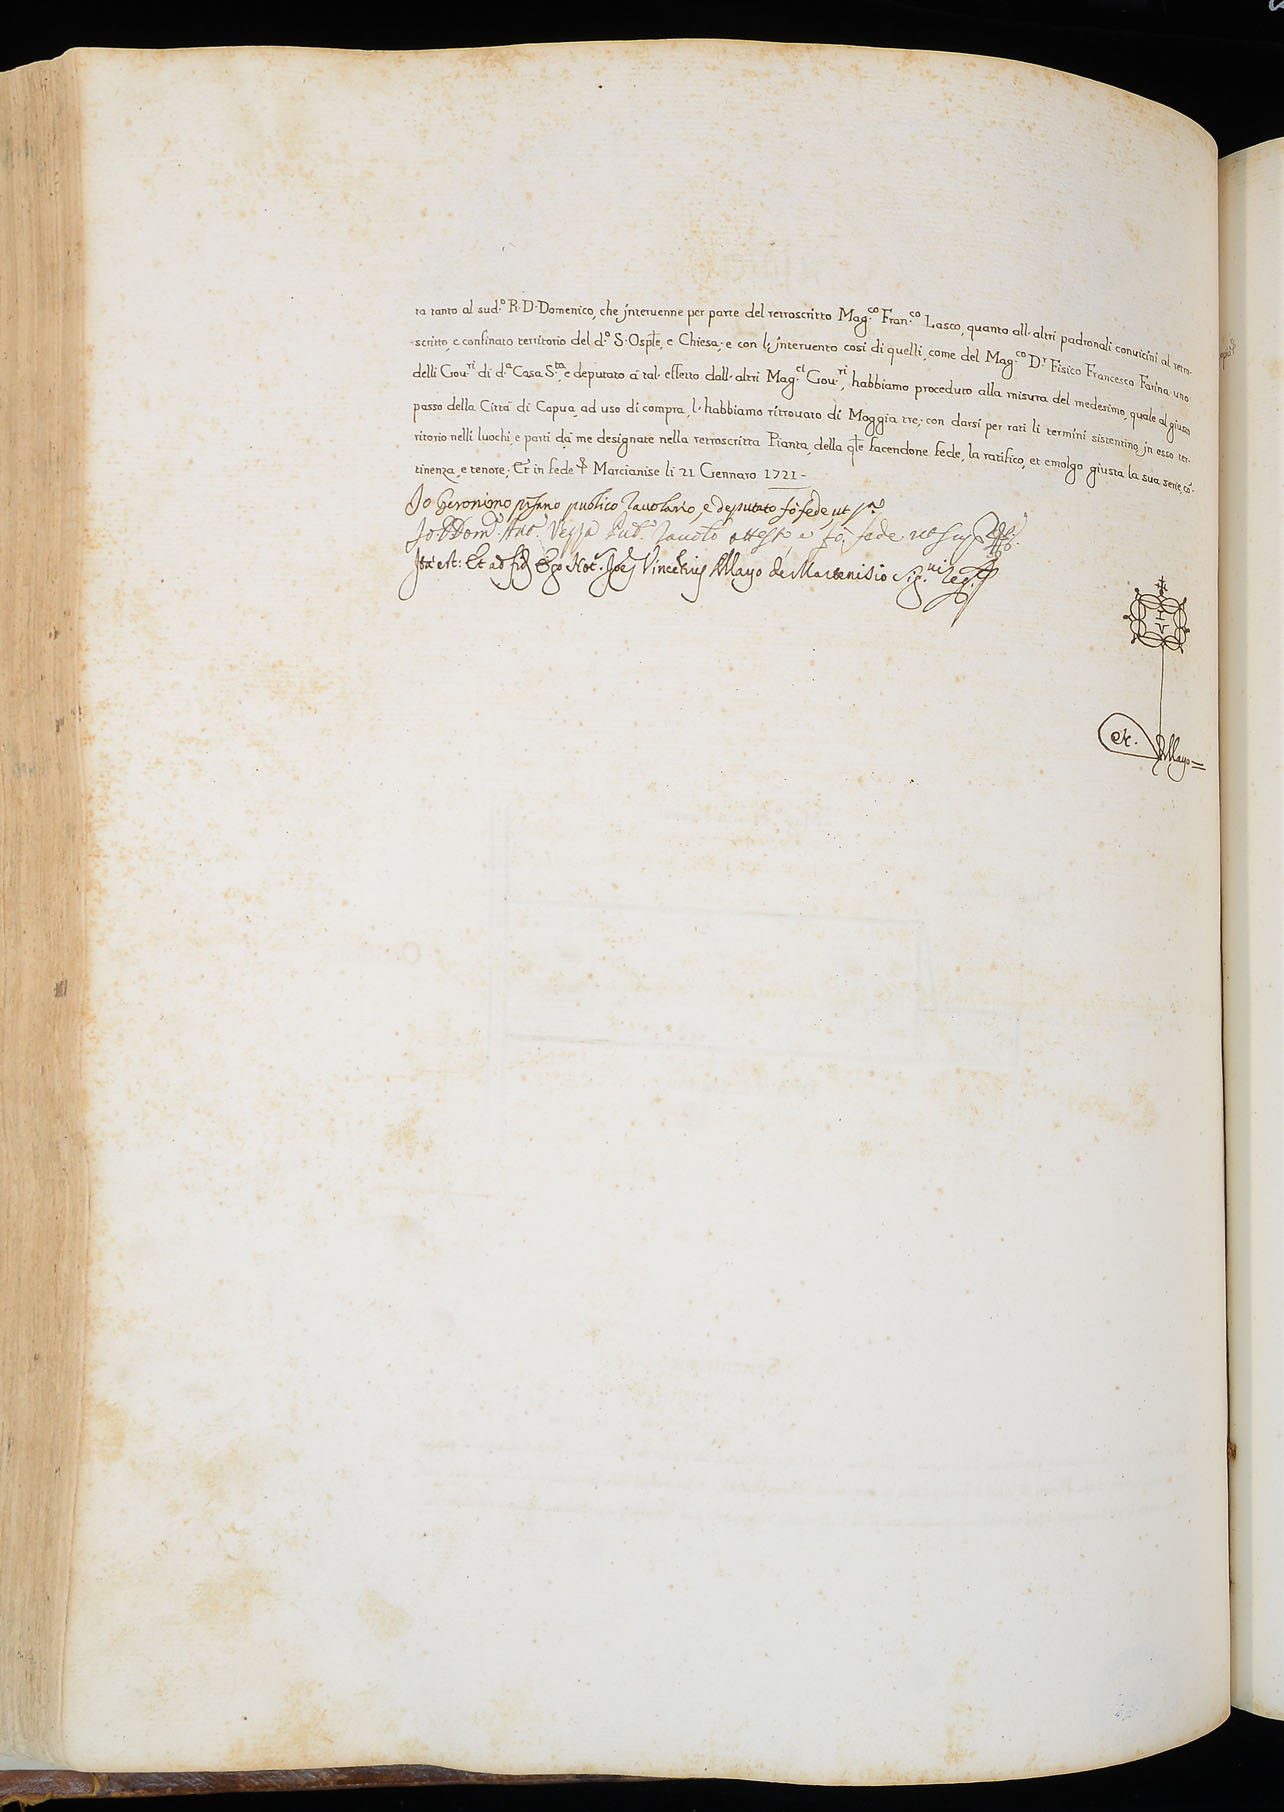 ta tanto al sud.º R. D. Domenico, che jnteruenne per parte del retroscritto Mag.co Fran.co Lasco, quanto all' altri padronali conuicini al retro-
scritto, e confinato territorio del d.º S. Osple, e Chiesa; e con l' jnteruento così di quelli, come del Mag.co D.r Fisico Francesco Farina uno
delli Gou.ri di d.a Casa S.ta, e deputato à tal' effetto dall' altri Mag.ci Gou.ri, habbiamo proceduto alla misura del medesimo, quale al giusto
passo della Città di Capua, ad uso di compra, l' habbiamo ritrouato di Moggia tre; con darsi per rati li termini sistentino jn esso ter-
ritorio nelli luochi, e parti da me designate nella retroscritta Pianta, della qle facendone fede, la ratifico, et emolgo giusta la sua serie, cō-
tinenza, e tenore; Et in fede Marcianise li 21 Gennaro 1721 -
Jo Geronimo pisano publico Tauolario, e deputato fò fede ut
Jo Dom.co Ant.º Pub.º Tauolº attesto e fò fede
Jta est: Et ad fid Ego Not. Joēs Vincētius de Mayo de Martenisio
de Mayo =